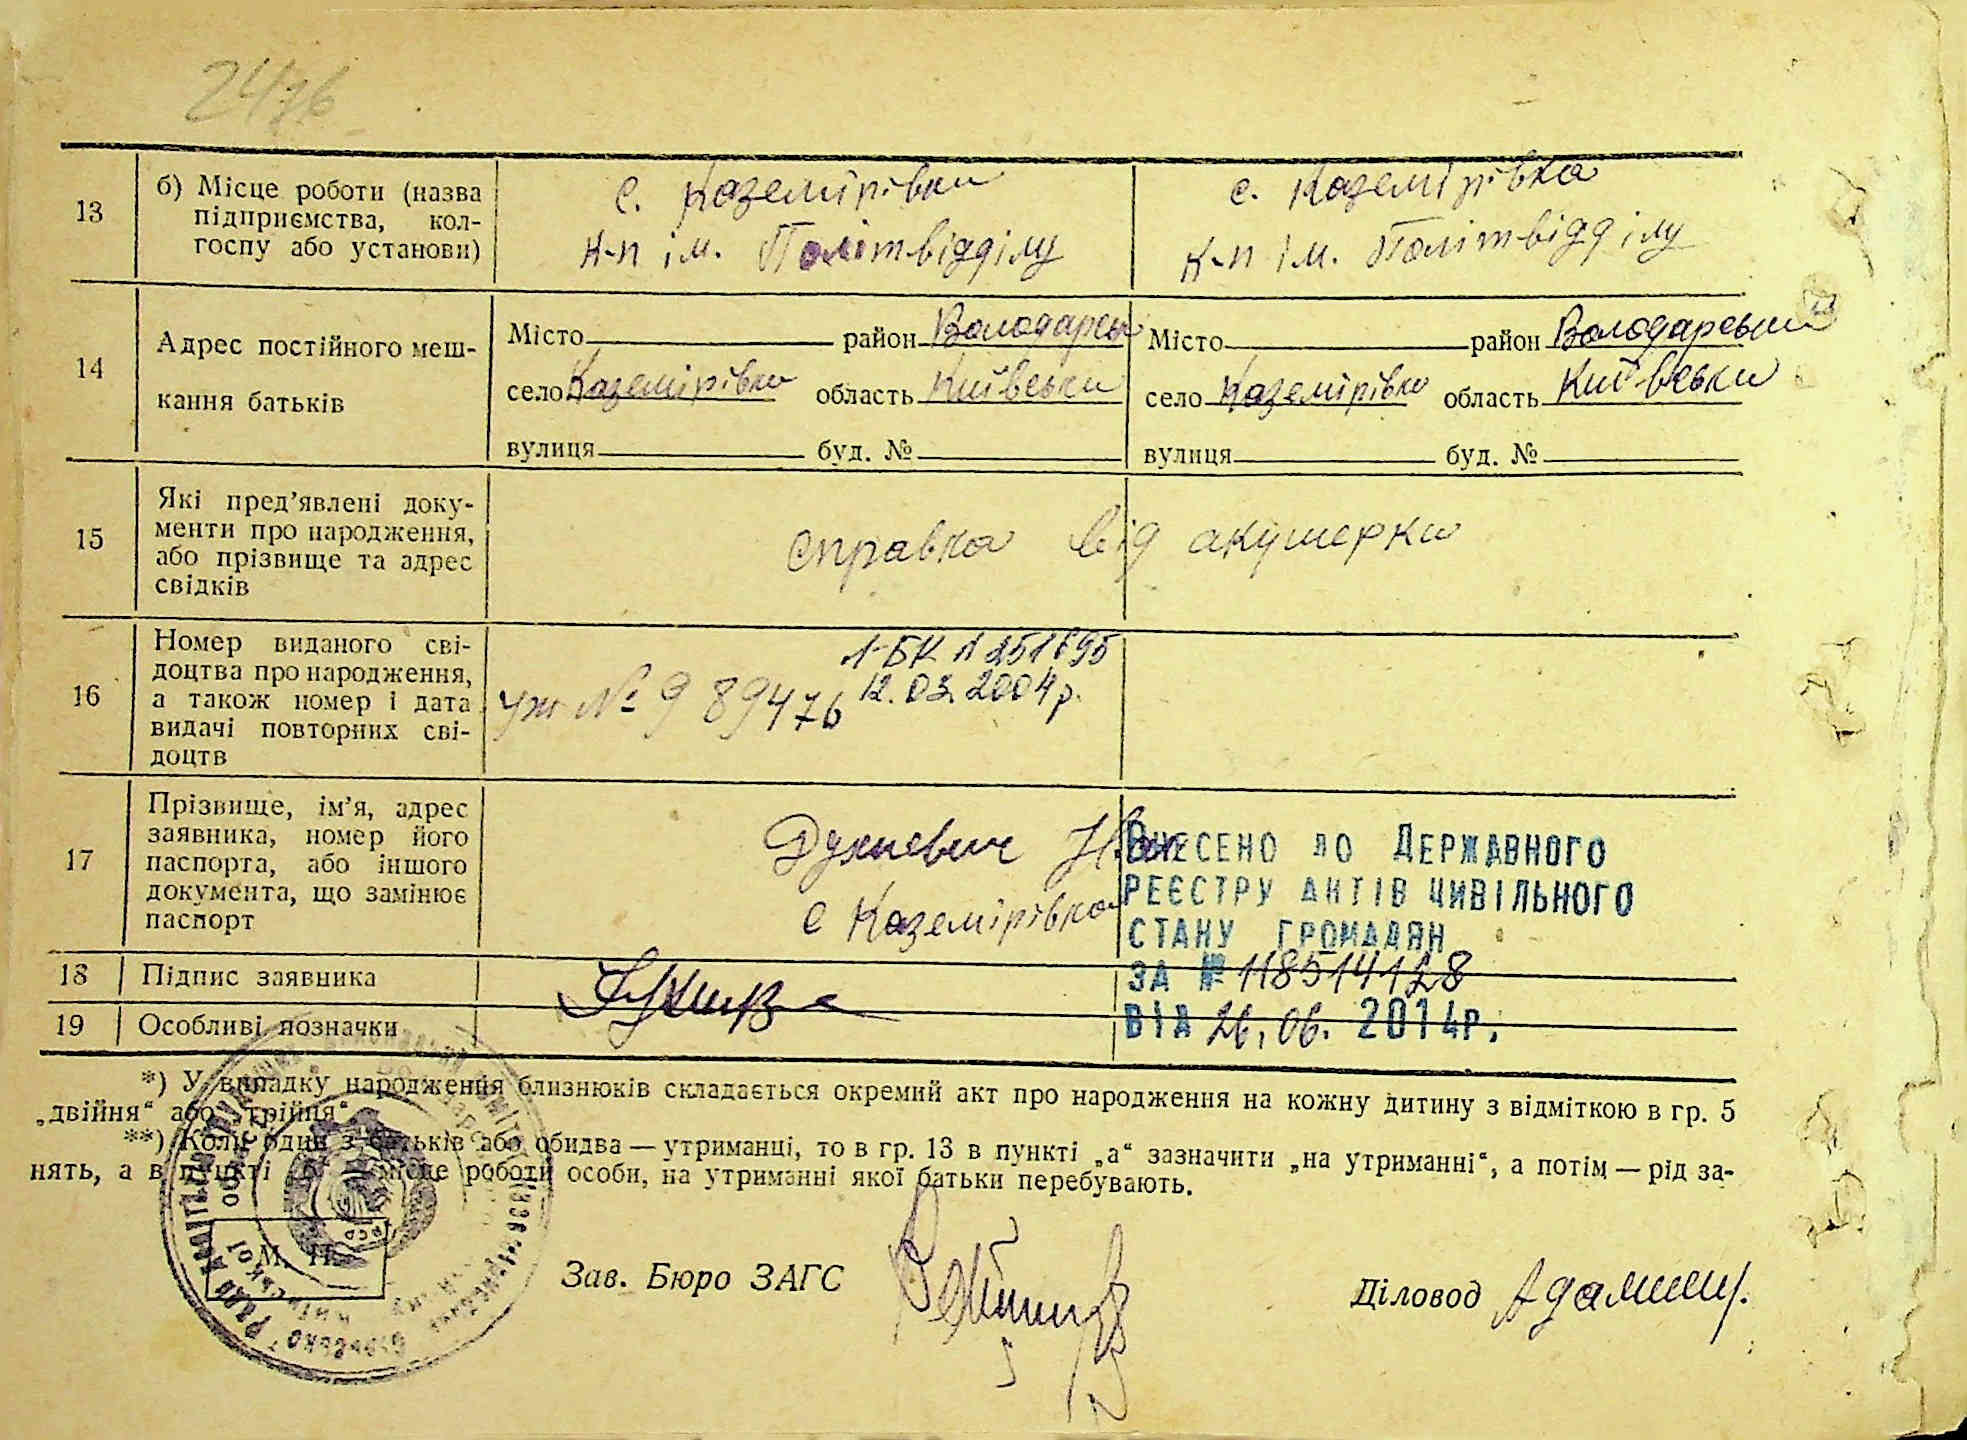 2476
13
б) Місце роботи (назва
підприємства, кол-
госпу або установи)
с. Каземірівка
к-п ім. Політвідділу
с. Каземірівка
к-п ім. Політвідділу
14
Адрес постійного меш-
кання батьків
Місто район Володарськ
село Каземірівка область Київська
вулиця буд. №
Місто район Володарський
село Каземірівка область Київська
вулиця буд. №
15
Які пред’явлені доку-
менти про народження,
або прізвище та адрес
свідків
справка від акушерки
16
Номер виданого сві-
доцтва про народження,
а також номер і дата
видачі повторних сві-
доцтв
1-БК № 251895
12.03.2004р.
№ 989476
17
Прізвище, ім’я, адрес
заявника, номер його
паспорта, або іншого
документа, що замінює
паспорт
с Каземірівка
Внесено до Державного
реєстру актів цивільного
стану громадян
за № 118514128
від 26.06.2014р.
18 Підпис заявника
19 Особливі позначки
*) У випадку народження близнюків складається окремий акт про народження на кожну дитину з відміткою в гр. 5
„двійня“ або „трійця“
**) Коли один з батьків або обидва — утриманці, то в гр. 13 в пункті „а“ зазначити „на утриманні“, а потім — рід за-
нять, а в пункті „б“ місце роботи особи, на утриманні якої батьки перебувають.
М. П.
Зав. Бюро ЗАГС
Діловод